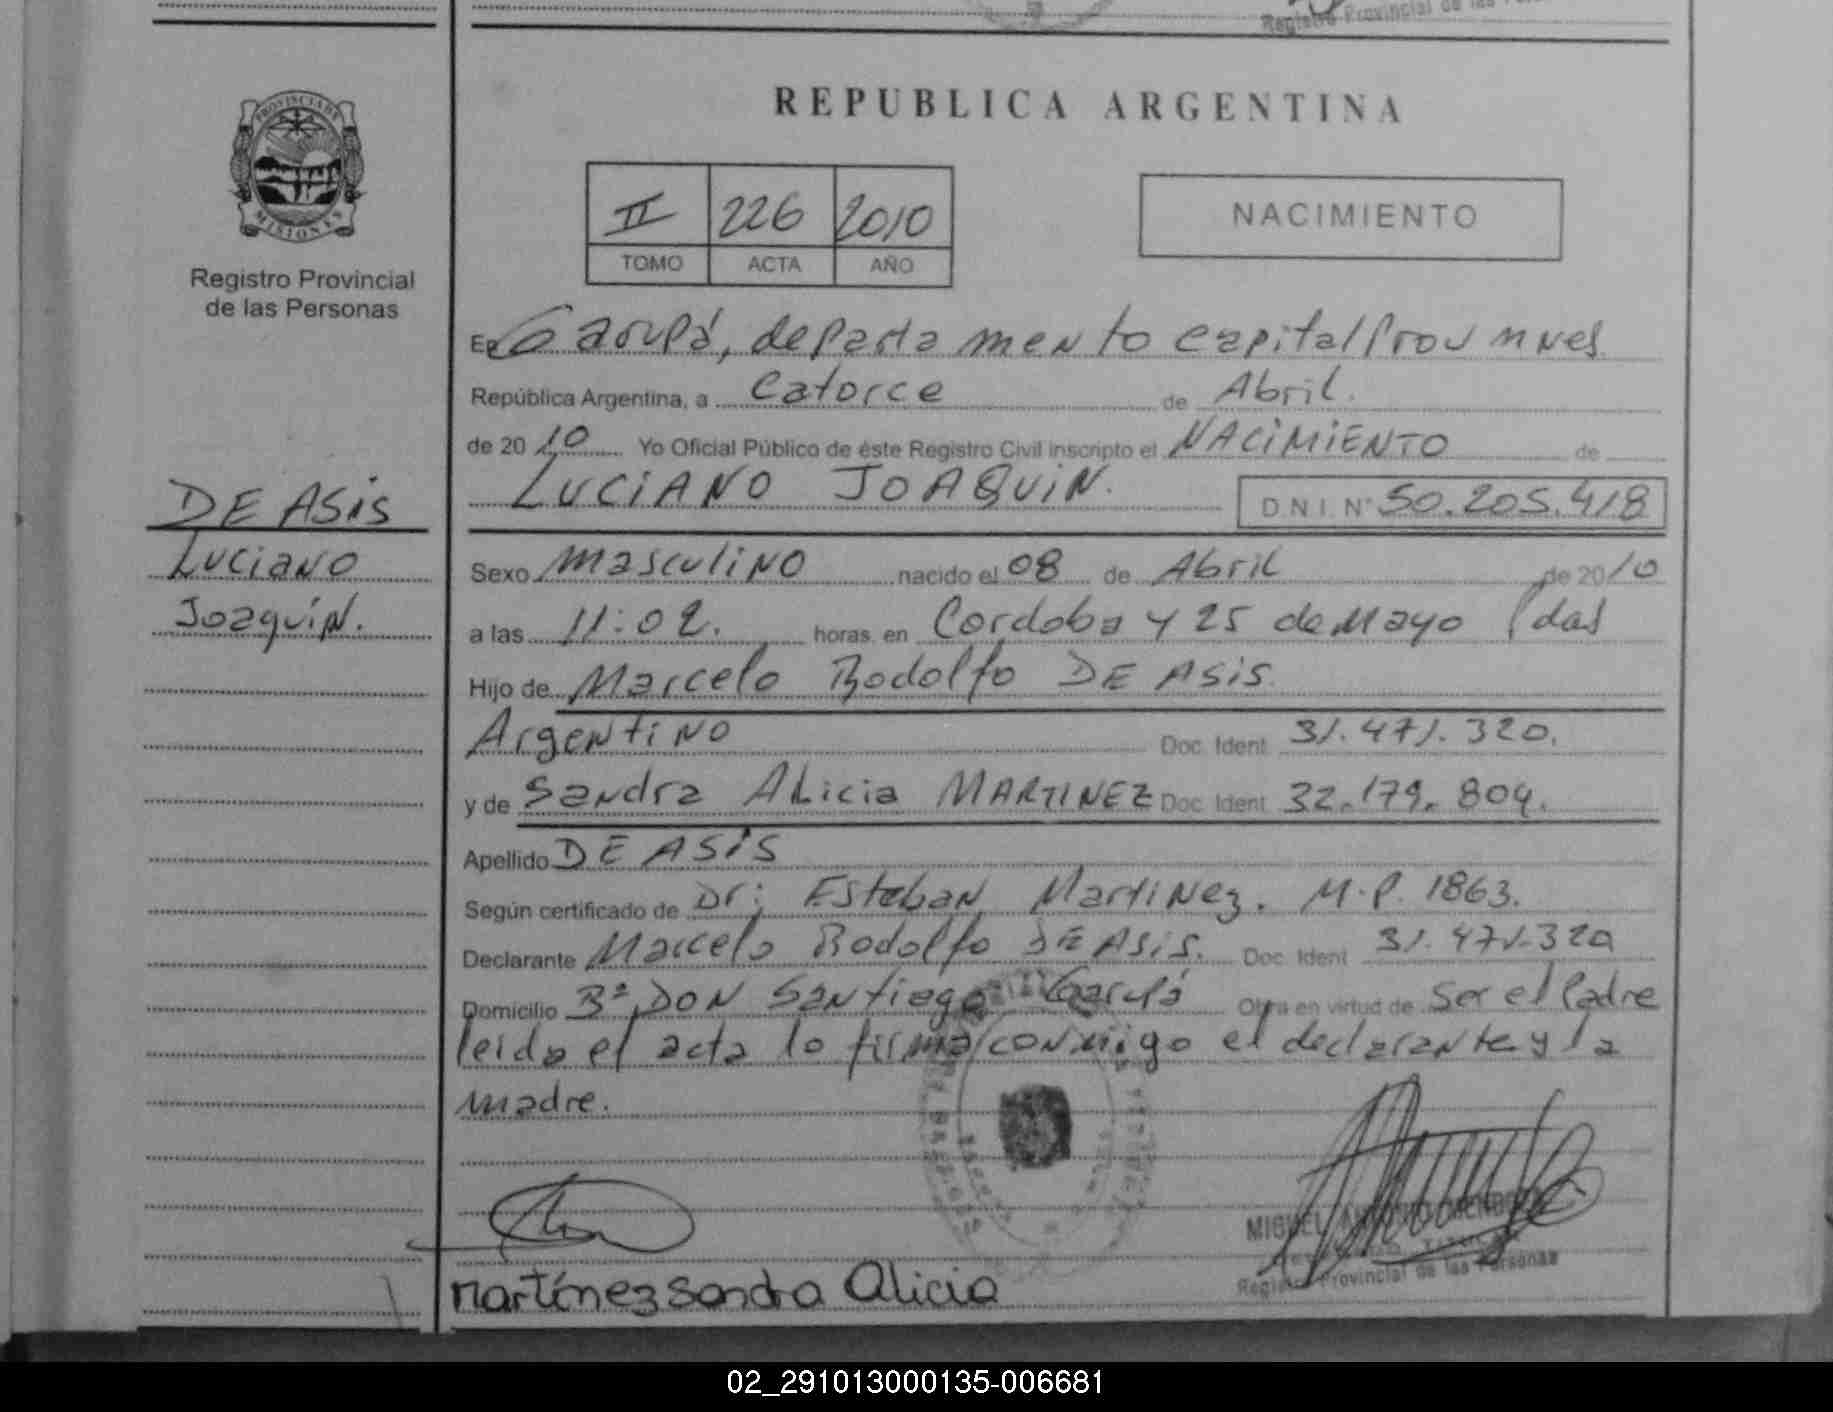 Registro Provincial de las
REPUBLICA ARGENTINA
PROVINCIA DE
MISIONES
Registro Provincial
de las Personas
II 226 2010
TOMO ACTA AÑO
NACIMIENTO
En Garupá, departamento capital Prov mnes
República Argentina, a Catorce de Abril.
de 2010 Yo Oficial Público de éste Registro Civil inscripto el NACIMIENTO de
LUCIANO JOAQUIN. D.N.I. N° 50.205.418
DE ASIS
Luciano
Joaquín.
Sexo masculino nacido el 08 de Abril de 2010
a las 11:02. horas. en Cordoba y 25 de Mayo Pdas
Hijo de Marcelo Rodolfo DE ASIS.
Argentino Doc. Ident. 31.471.320.
y de Sandra Alicia MARTINEZ Doc. Ident. 32.179.804.
Apellido DE ASIS
Según certificado de Dr: Esteban Martinez. M.P. 1863.
Declarante Marcelo Rodolfo DE ASIS. Doc. Ident. 31.471.320
Domicilio B° DON Santiago Garupá Obra en virtud de ser el Padre
leida el acta lo firma conmigo el declarante y la
madre.
MIGUEL
Registro Provincial de las Personas
martínez sandra Alicia
02_291013000135-006681